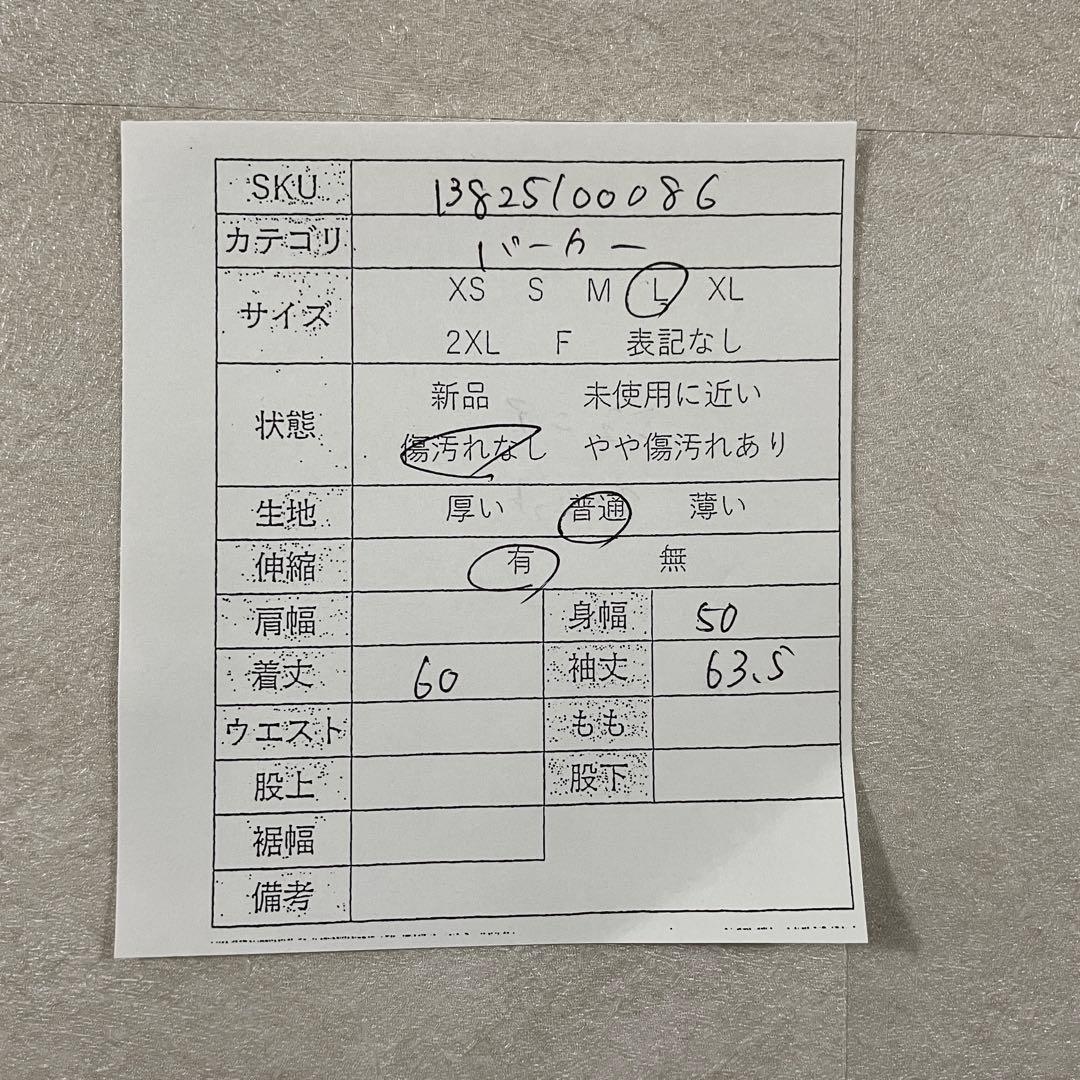 SKU 13825100086
カテゴリ パーカー
サイズ XS S M L XL
2XL F 表記なし
状態 新品 未使用に近い
傷汚れなし やや傷汚れあり
生地 厚い 普通 薄い
伸縮 有 無
肩幅 身幅 50
着丈 60 袖丈 63.5
ウエスト もも
股上 股下
裾幅
備考